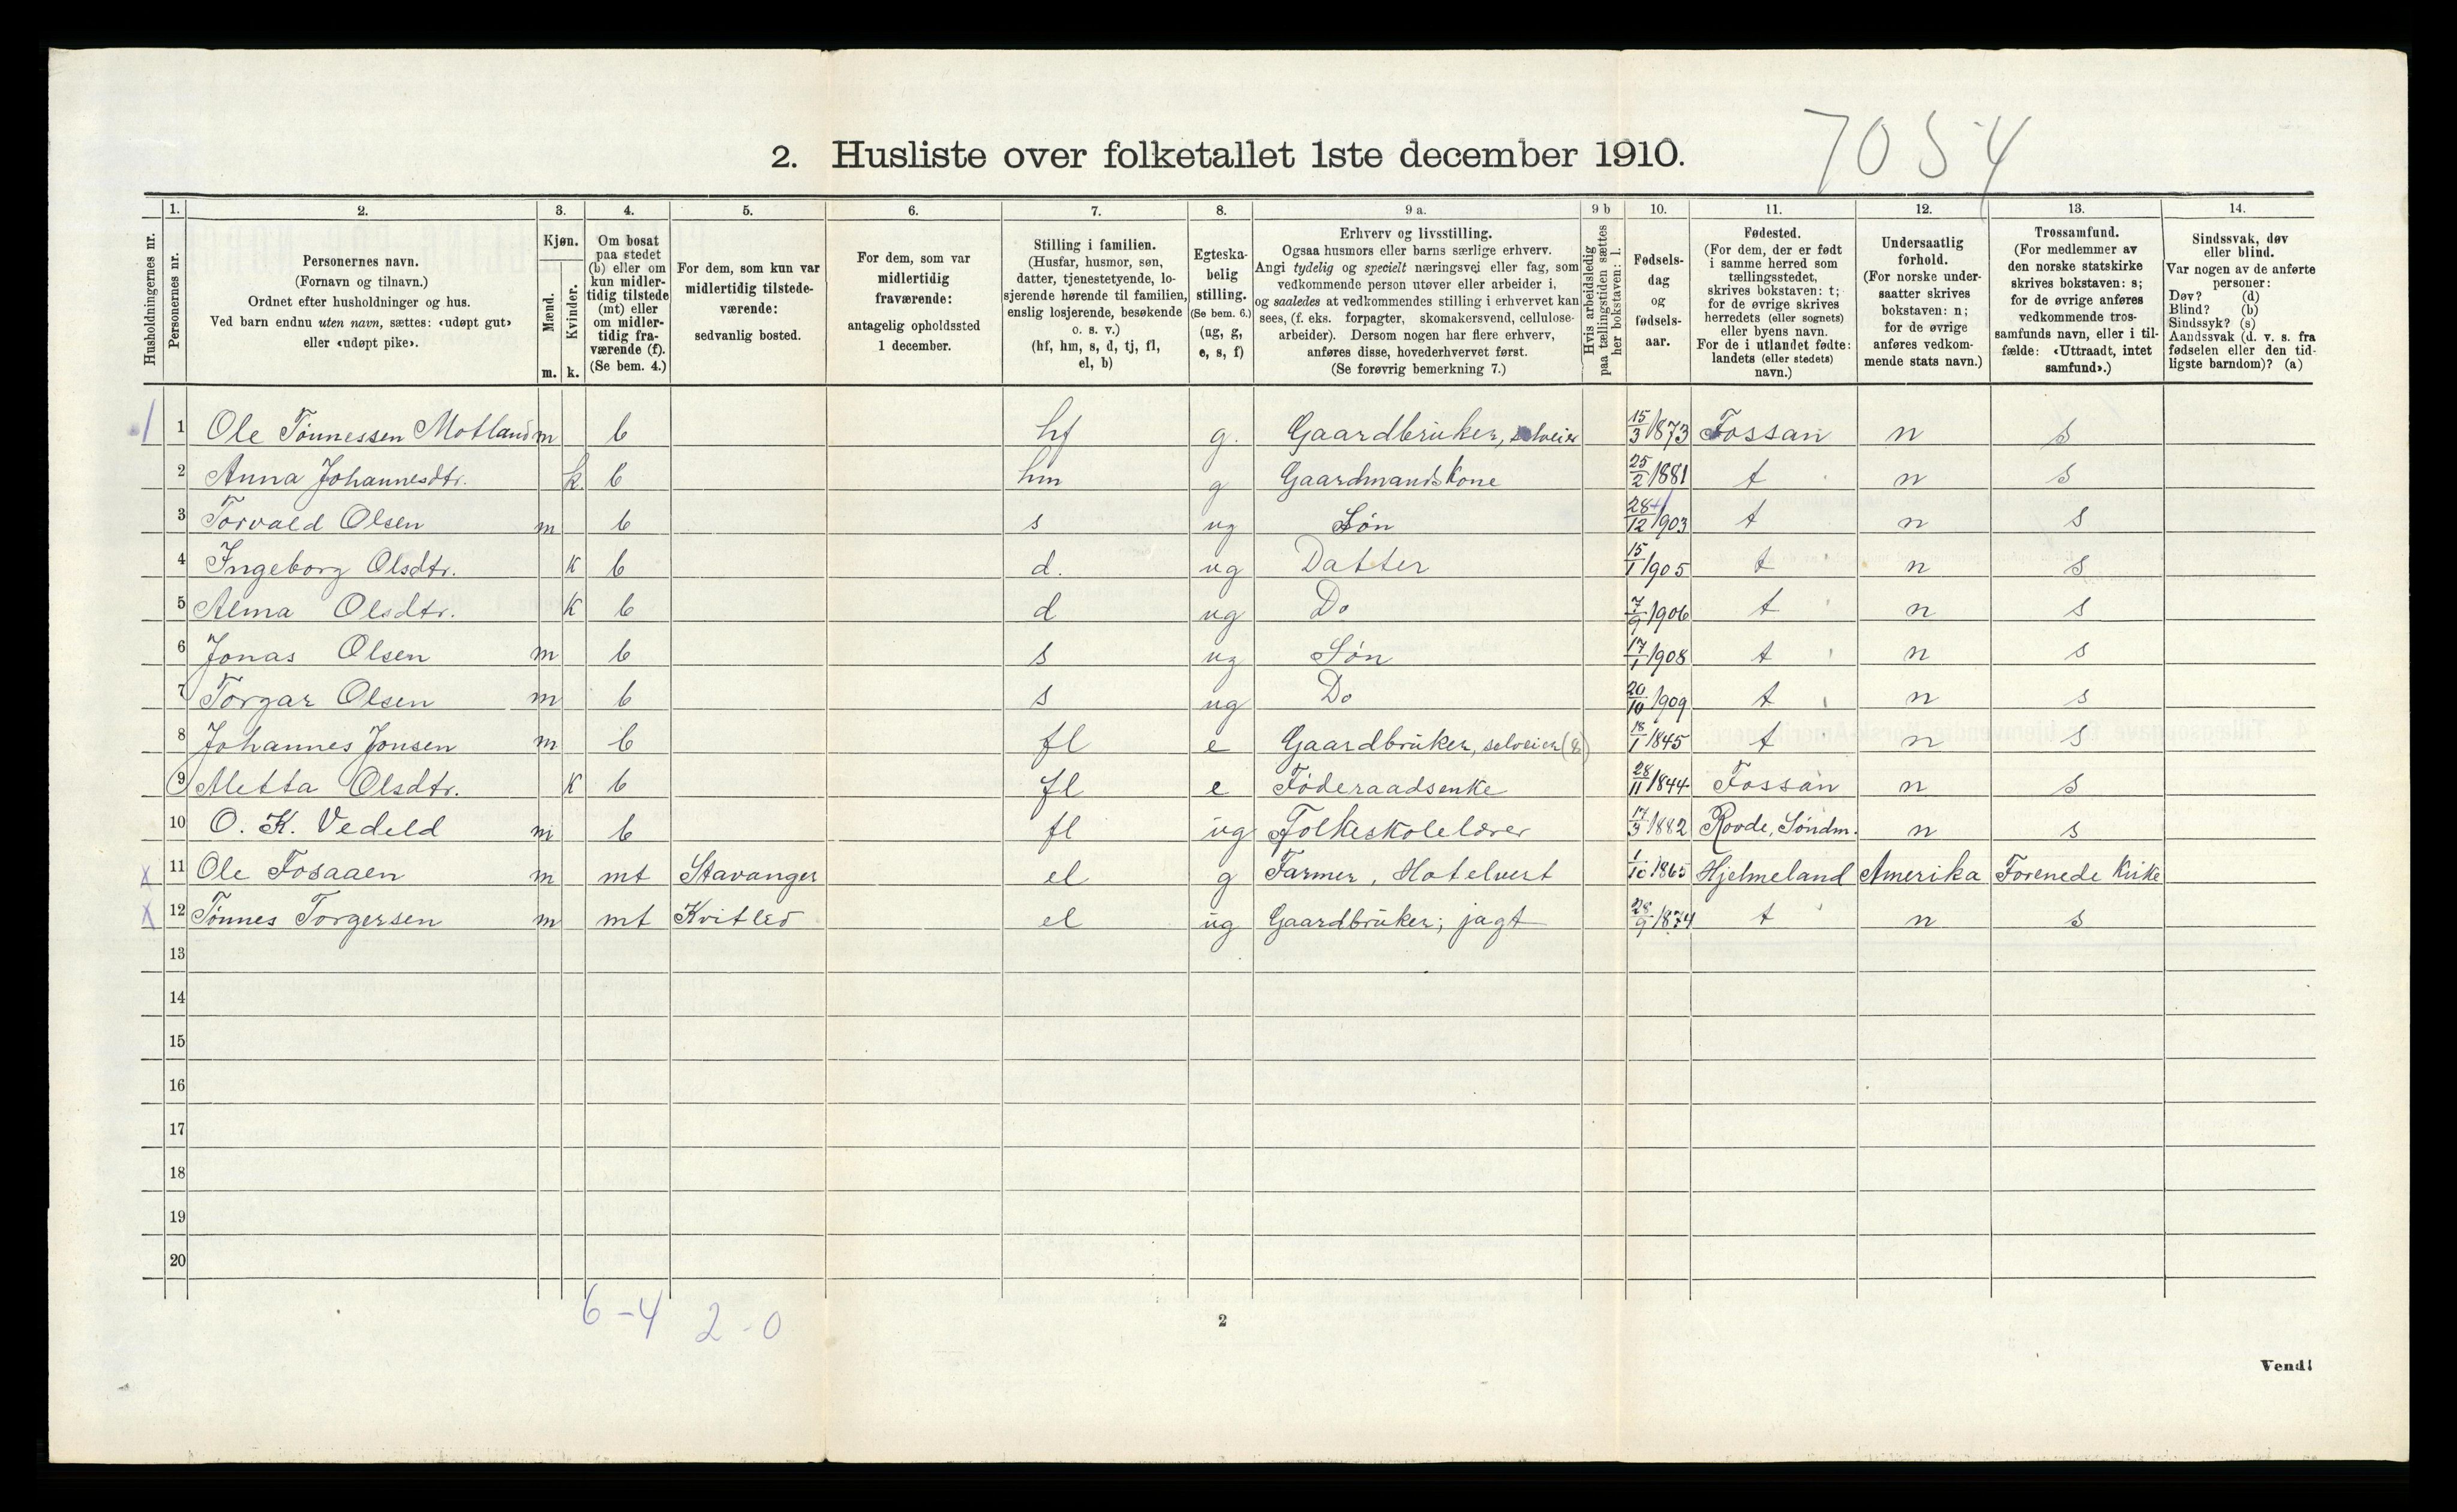 7054
2. Husliste over folketallet 1ste december 1910.
1. 2. 3. 4. 5. 6. 7. 8. 9 a. 9 b 10. 11. 12. 13. 14.
Husholdningernes nr.
Personernes nr.
Personernes navn.
(Fornavn og tilnavn.)
Ordnet efter husholdninger og hus.
Ved barn endnu uten navn, sættes: «udøpt gut»
eller «udøpt pike».
Kjøn.
Mænd.
Kvinder.
m. k.
Om bosat
paa stedet
(b) eller om
kun midler-
tidig tilstede
(mt) eller
om midler-
tidig fra-
værende (f).
(Se bem. 4.)
For dem, som kun var
midlertidig tilstede-
værende:
sedvanlig bosted.
For dem, som var
midlertidig
fraværende:
antagelig opholdssted
1 december.
Stilling i familien.
(Husfar, husmor, søn,
datter, tjenestetyende, lo-
sjerende hørende til familien,
enslig losjerende, besøkende
o. s. v.)
(hf, hm, s, d, tj, fl,
el, b)
Egteska-
belig
stilling.
(Se bem. 6.)
(ug, g,
e, s, f)
Erhverv og livsstilling.
Ogsaa husmors eller barns særlige erhverv.
Angi tydelig og specielt næringsvei eller fag, som
vedkommende person utøver eller arbeider i,
og saaledes at vedkommendes stilling i erhvervet kan
sees, (f. eks. forpagter, skomakersvend, cellulose-
arbeider). Dersom nogen har flere erhverv,
anføres disse, hovederhvervet først.
(Se forøvrig bemerkning 7.)
Hvis arbeidsledig
paa tællingstiden sættes
her bokstaven: l.
Fødsels-
dag
og
fødsels-
aar.
Fødested.
(For dem, der er født
i samme herred som
tællingsstedet,
skrives bokstaven: t;
for de øvrige skrives
herredets (eller sognets)
eller byens navn.
For de i utlandet fødte:
landets (eller stedets)
navn.)
Undersaatlig
forhold.
(For norske under-
saatter skrives
bokstaven: n;
for de øvrige
anføres vedkom-
mende stats navn.)
Trossamfund.
(For medlemmer av
den norske statskirke
skrives bokstaven: s;
for de øvrige anføres
vedkommende tros-
samfunds navn, eller i til-
fælde: «Uttraadt, intet
samfund».)
Sindssvak, døv
eller blind.
Var nogen av de anførte
personer:
Døv? (d)
Blind? (b)
Sindssyk? (s)
Aandssvak (d. v. s. fra
fødselen eller den tid-
ligste barndom)? (a)
1 1 Ole Tønnessen Motland m b hf g. Gaardbruker, selveier 15/3 1873 Fossan n s
2 Anna Johannesdtr. k. b hm g Gaardmandskone 25/2 1881 t n s
3 Torvald Olsen m b s ug Søn 28/12 1903 t n s
4 Ingeborg Olsdtr. k b d. ug Datter 15/1 1905 t n s
5 Alma Olsdtr. k b d ug Do 7/9 1906 t n s
6 Jonas Olsen m b s ug Søn 17/1 1908 t n s
7 Torgar Olsen m b s ug Do 20/10 1909 t n s
8 Johannes Jonsen m b fl e Gaardbruker, selveier 18/1 1845 t n s
9 Metta Olsdtr. k b fl e Føderaadsenke 28/11 1844 Fossan n s
10 O. K. Vedeld m b fl ug Folkeskolelærer 17/3 1882 Rovde, Søndm. n s
x 11 Ole Fosaaen m mt Stavanger el g Farmer, Hotelvert 1/10 1865 Hjelmeland Amerika Forenede Kirke
x 12 Tønnes Torgersen m mt Kvitlev el ug Gaardbruker; jagt 28/9 1874 t n s
13
14
15
16
17
18
19
20
6-4 2-0
2
Vend!